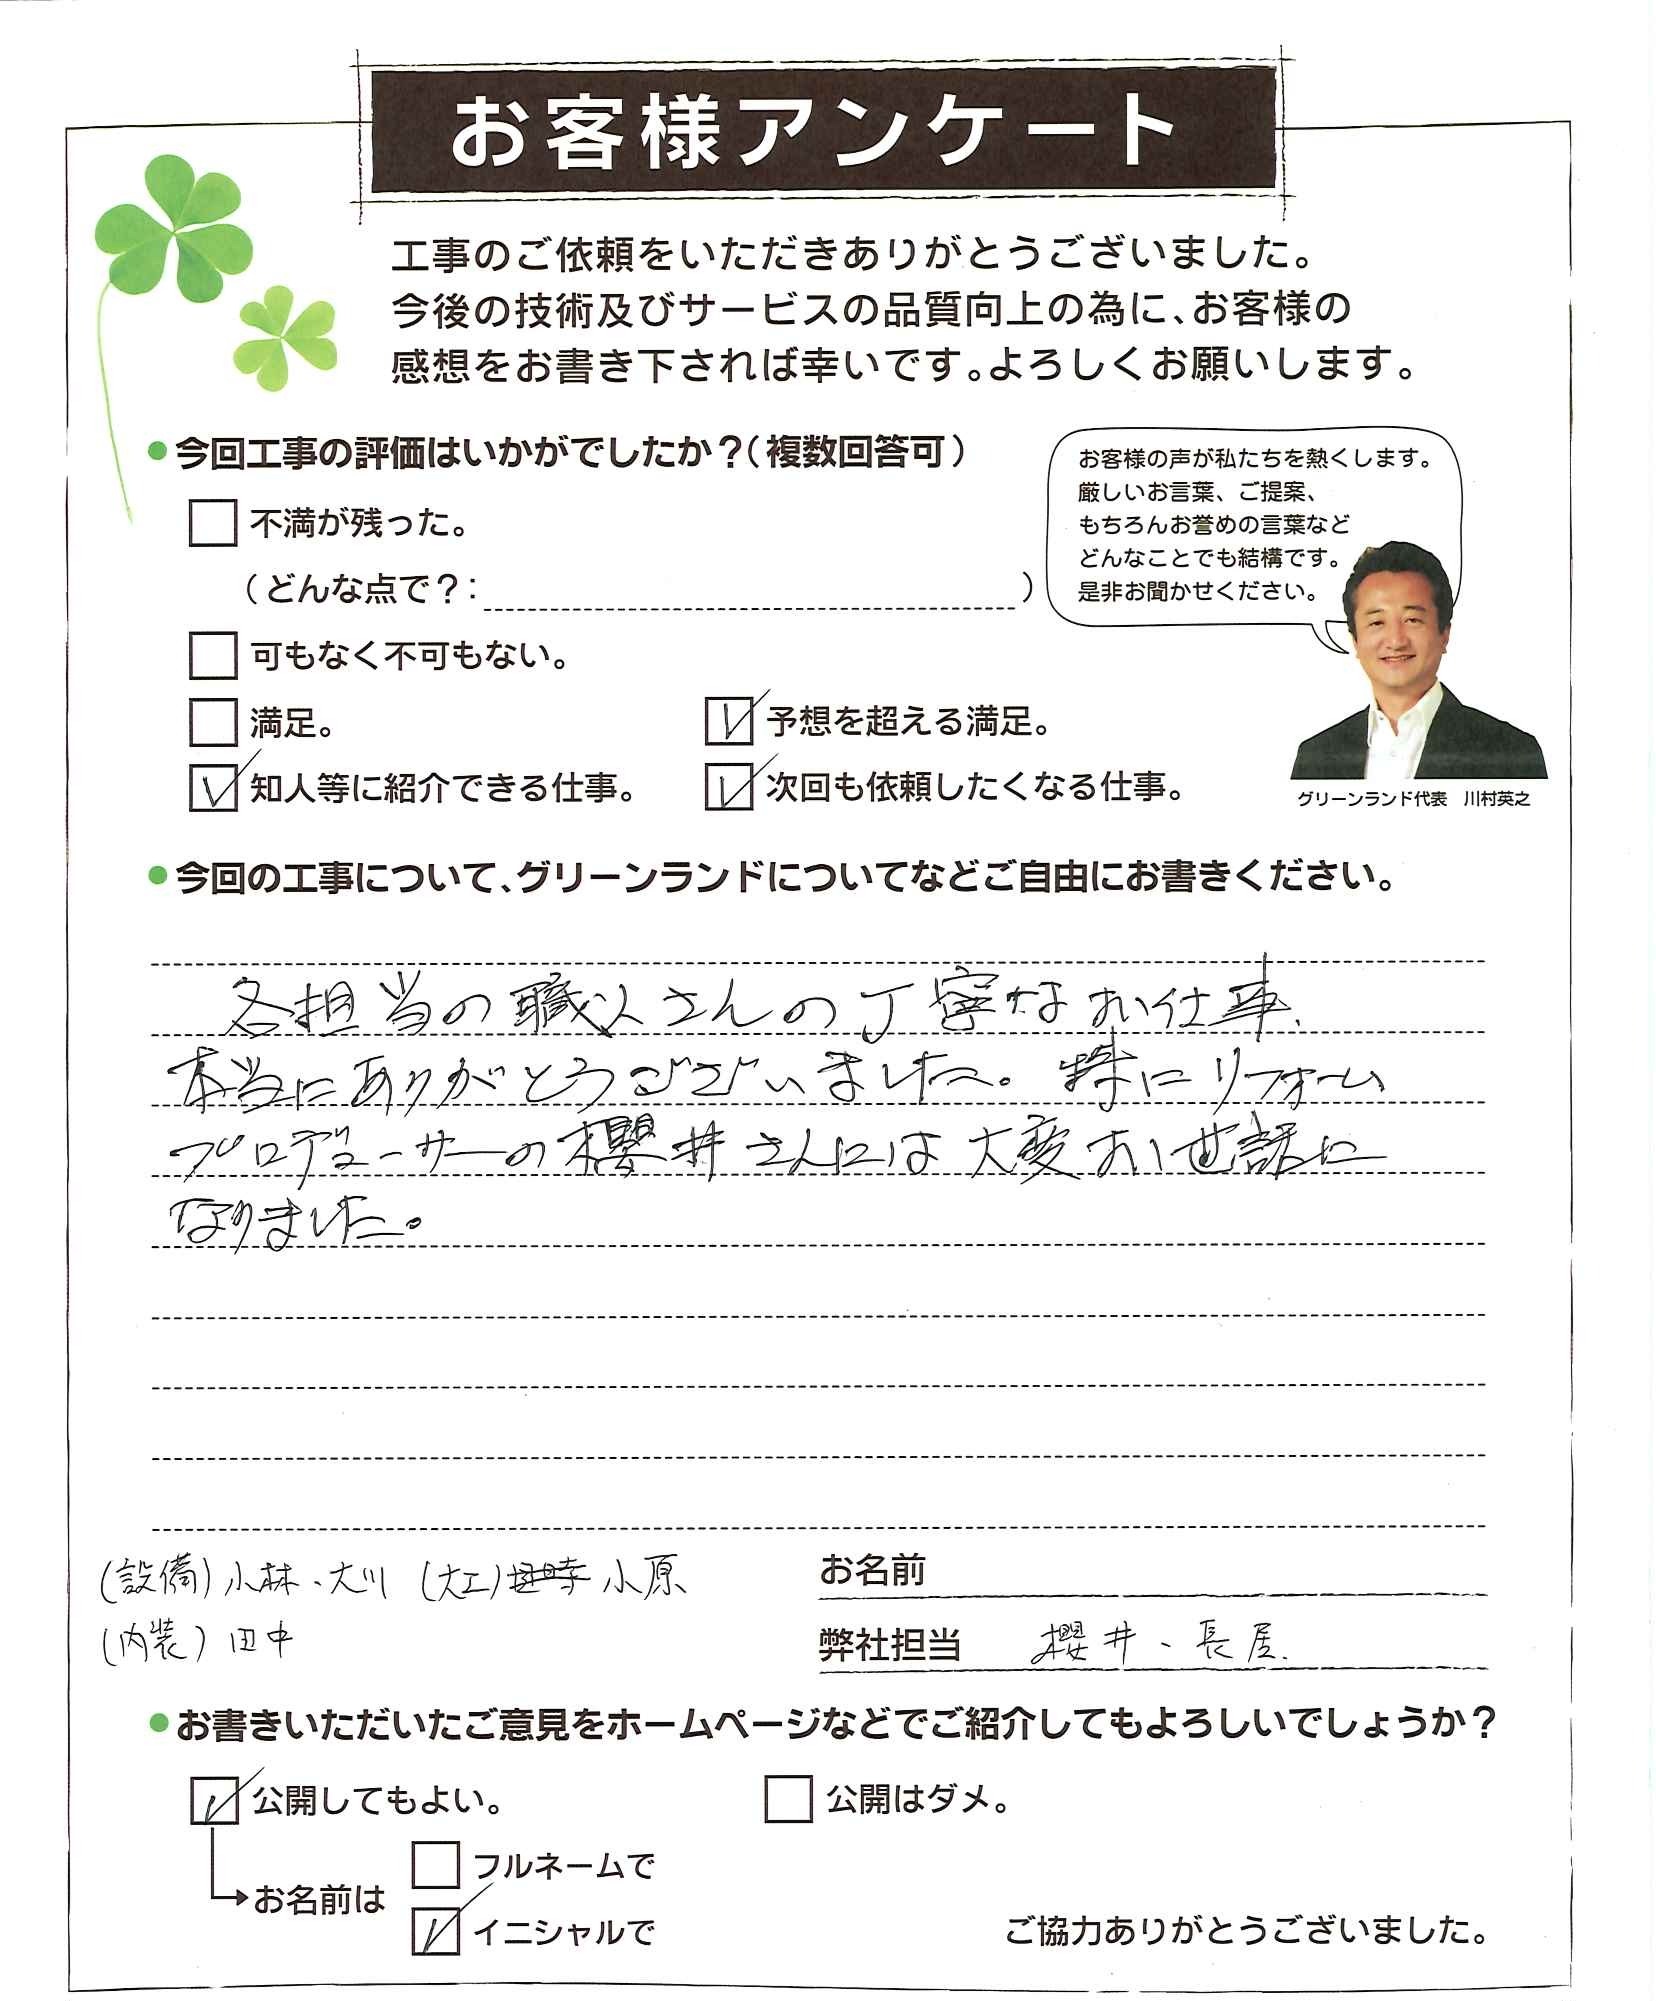 お客様アンケート
工事のご依頼をいただきありがとうございました。
今後の技術及びサービスの品質向上の為に、お客様の
感想をお書き下されれば幸いです。よろしくお願いします。
●今回工事の評価はいかがでしたか?(複数回答可)
不満が残った。
(どんな点で?: )
可もなく不可もない。
満足。
予想を超える満足。
知人等に紹介できる仕事。
次回も依頼したくなる仕事。
お客様の声が私たちを熱くします。
厳しいお言葉、ご提案、
もちろんお誉めの言葉など
どんなことでも結構です。
是非お聞かせください。
グリーンランド代表 川村英之
●今回の工事について、グリーンランドについてなどご自由にお書きください。
各担当の職人さんの丁寧なお仕事、
本当にありがとうございました。特にリフォーム
プロデューサーの櫻井さんには大変お世話に
なりました。
(設備)小林、大川 (大工) 小原
(内装)田中
お名前
弊社担当 櫻井、長屋
●お書きいただいたご意見をホームページなどでご紹介してもよろしいでしょうか?
公開してもよい。
公開はダメ。
お名前は
フルネームで
イニシャルで
ご協力ありがとうございました。